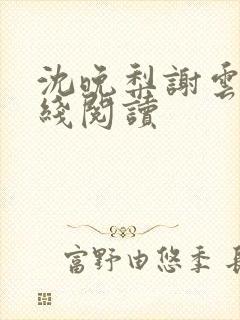 沈晚梨謝雲
綫閱讀
富野由悠季 長